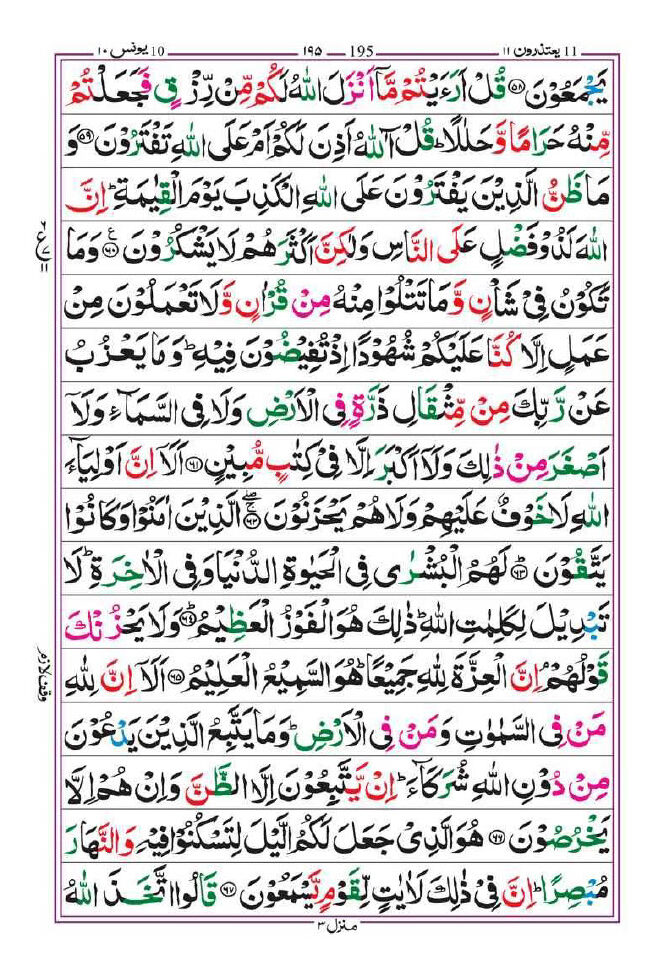 10 يونس ١٠ 195 ١٩٥ 11 يعتذرون ١١
يَجْمَعُوْنَ ﴿۵۸﴾ قُلْ اَرَءَيْتُمْ مَّاۤ اَنْزَلَ اللّٰهُ لَكُمْ مِّنْ رِّزْقٍ فَجَعَلْتُمْ
مِّنْهُ حَرَامًا وَّحَلٰلًا ؕ قُلْ آٰللّٰهُ اَذِنَ لَكُمْ اَمْ عَلَى اللّٰهِ تَفْتَرُوْنَ ﴿۵۹﴾ وَ
مَا ظَنُّ الَّذِيْنَ يَفْتَرُوْنَ عَلَى اللّٰهِ الْكَذِبَ يَوْمَ الْقِيٰمَةِ ؕ اِنَّ
اللّٰهَ لَذُوْ فَضْلٍ عَلَى النَّاسِ وَلٰكِنَّ اَكْثَرَهُمْ لَا يَشْكُرُوْنَ ﴿۶۰﴾ وَمَا
تَكُوْنُ فِيْ شَاْنٍ وَّمَا تَتْلُوْا مِنْهُ مِنْ قُرْاٰنٍ وَّلَا تَعْمَلُوْنَ مِنْ
عَمَلٍ اِلَّا كُنَّا عَلَيْكُمْ شُهُوْدًا اِذْ تُفِيْضُوْنَ فِيْهِ ؕ وَمَا يَعْزُبُ
عَنْ رَّبِّكَ مِنْ مِّثْقَالِ ذَرَّةٍ فِي الْاَرْضِ وَلَا فِي السَّمَآءِ وَلَاۤ
اَصْغَرَ مِنْ ذٰلِكَ وَلَاۤ اَكْبَرَ اِلَّا فِيْ كِتٰبٍ مُّبِيْنٍ ﴿۶۱﴾ اَلَاۤ اِنَّ اَوْلِيَآءَ
اللّٰهِ لَا خَوْفٌ عَلَيْهِمْ وَلَا هُمْ يَحْزَنُوْنَ ﴿۶۲﴾ الَّذِيْنَ اٰمَنُوْا وَكَانُوْا
يَتَّقُوْنَ ﴿۶۳﴾ لَهُمُ الْبُشْرٰى فِي الْحَيٰوةِ الدُّنْيَا وَفِي الْاٰخِرَةِ ؕ لَا
تَبْدِيْلَ لِكَلِمٰتِ اللّٰهِ ؕ ذٰلِكَ هُوَ الْفَوْزُ الْعَظِيْمُ ﴿۶۴﴾ وَلَا يَحْزُنْكَ
قَوْلُهُمْ ۘ اِنَّ الْعِزَّةَ لِلّٰهِ جَمِيْعًا ؕ هُوَ السَّمِيْعُ الْعَلِيْمُ ﴿۶۵﴾ اَلَاۤ اِنَّ لِلّٰهِ
مَنْ فِي السَّمٰوٰتِ وَمَنْ فِي الْاَرْضِ ؕ وَمَا يَتَّبِعُ الَّذِيْنَ يَدْعُوْنَ
مِنْ دُوْنِ اللّٰهِ شُرَكَآءَ ؕ اِنْ يَّتَّبِعُوْنَ اِلَّا الظَّنَّ وَاِنْ هُمْ اِلَّا
يَخْرُصُوْنَ ﴿۶۶﴾ هُوَ الَّذِيْ جَعَلَ لَكُمُ الَّيْلَ لِتَسْكُنُوْا فِيْهِ وَالنَّهَارَ
مُبْصِرًا ؕ اِنَّ فِيْ ذٰلِكَ لَاٰيٰتٍ لِّقَوْمٍ يَّسْمَعُوْنَ ﴿۶۷﴾ قَالُوا اتَّخَذَ اللّٰهُ
وقف لازم
منزل ٣